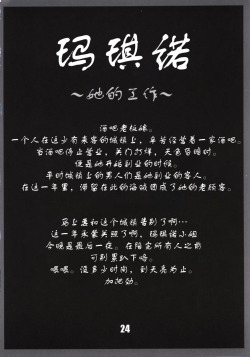 玛琪诺
～她的工作～
酒吧老板娘。
一个人在这少有来客的城镇上，辛苦经营着一家酒吧。
当酒吧停止营业，关门打烊，天亮客暗时。
便是她开始副业的时候。
平时城镇上的男人们是她副业的客人。
在这一年里，滞留在此的海贼团成了她的老顾客。
马上要和这个城镇告别了啊…
这一年承蒙关照了啊，玛琪诺小姐
今晚是最后一夜。在陪完所有人之前
可别累趴下咯。
喂喂。没多少时间，到天亮为止。
加把劲。
24